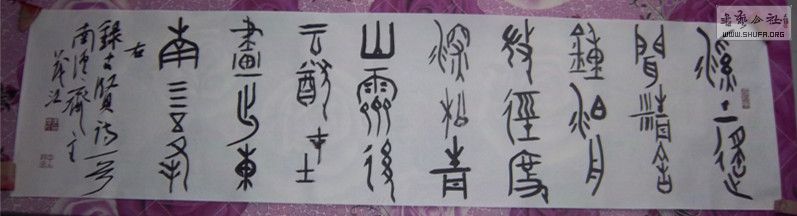 書藝公社
WWW.SHUFA.ORG
溪上遙
聞精舍
鐘泊舟
微徑度
深松青
山霽後
云猶在
畫出東
南四五峰
右
錄古賢詩一首